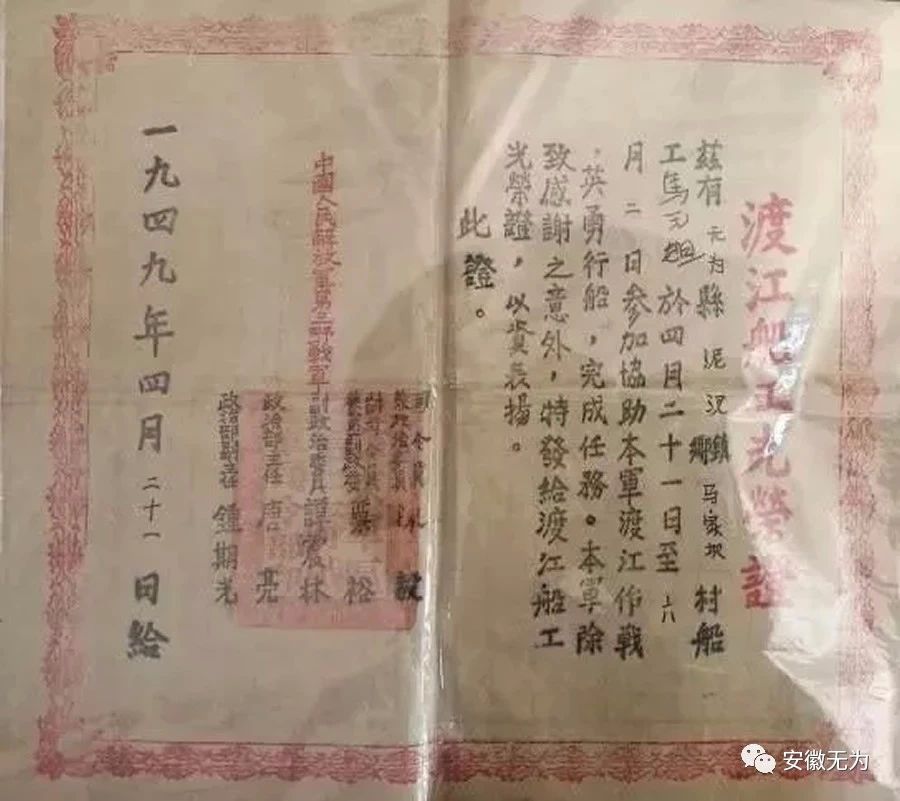 渡江船工光榮證
茲有 元为 縣 泥汊 鄉鎮 马家坝 村船
工馬元 於四月二十一日至 六
月 二 日參加協助本軍渡江作戰
，英勇行船，完成任務。本軍除
致感謝之意外，特發給渡江船工
光榮證，以資表揚。
此證。
中國人民解放軍第三野戰軍
司令員
兼政治委員 陳毅
副司令員
兼副政委 粟 裕
副政治委員 譚震林
政治部主任 唐 亮
政治部副主任 鍾期光
一九四九年四月 二十一 日給
安徽无为